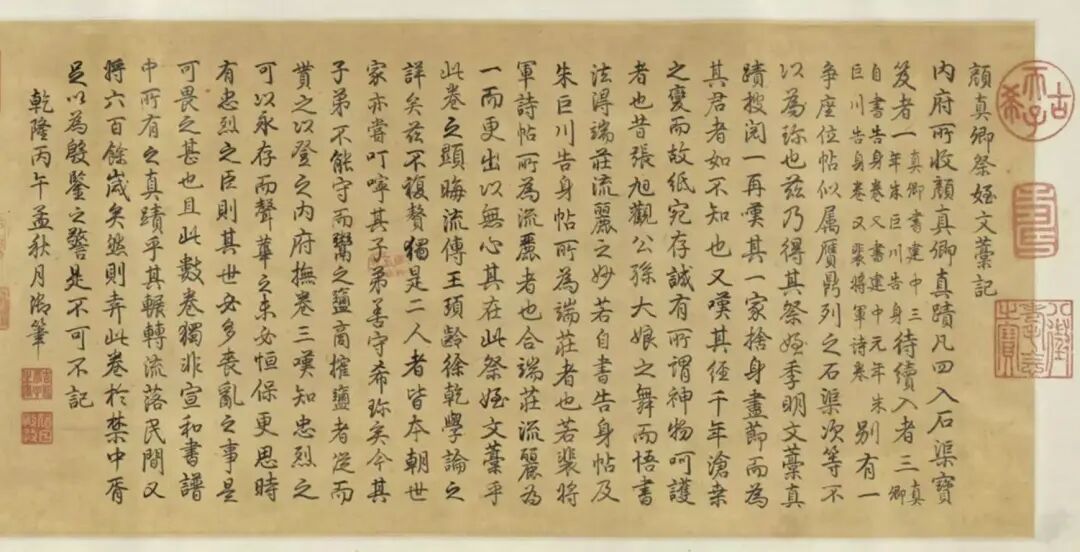 顏真卿祭姪文藁記
內府所收顏真卿真蹟凡四入石渠寶
笈者一真卿書建中三年朱巨川告身待續入者三真卿
自書告身卷又書建中元年朱巨川告身卷又裴將軍诗卷别有一
争座位帖似属贋鼎列之石渠次等不
以為珎也兹乃得其祭姪季明文藁真
蹟披閲一再嘆其一家捨身盡節而為
其君者如不知也又嘆其經千年滄桑
之變而故紙宛存誠有所謂神物呵護
者也昔張旭觀公孫大娘之舞而悟書
法得端莊流麗之妙若自書告身帖及
朱巨川告身帖所為端莊者也若裴將
軍詩帖所為流麗者也合端莊流麗為
一而更出以無心其在此祭姪文藁乎
此卷之顯晦流傳王頊齡徐乾學論之
詳矣兹不複贅獨是二人者皆本朝世
家亦嘗叮嚀其子弟善守希珎矣今其
子弟不能守而鬻之鹽商搉鹽者從而
貰之以登之内府撫卷三嘆知忠烈之
可以永存而聲華之未必恒保更思時
有忠烈之臣則其世必多喪亂之事是
可畏之甚也且此數卷獨非宣和書譜
中所有之真蹟乎其輾轉流落民間又
將六百餘嵗矣然則弆此卷於禁中胥
足以為殷鑒之警是不可不記
乾隆丙午孟秋月御筆
古希天子
八徵耄念之寶